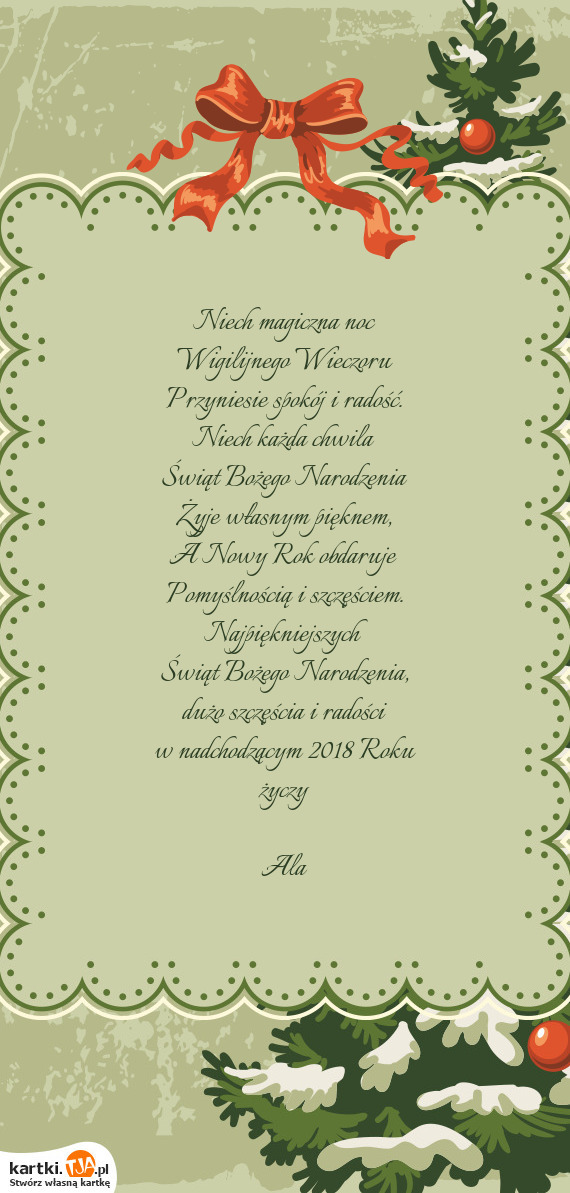 Niech magiczna noc
Wigilijnego Wieczoru
Przyniesie spokój i radość.
Niech każda chwila
Świąt Bożego Narodzenia
Żyje własnym pięknem,
A Nowy Rok obdaruje
Pomyślnością i szczęściem.
Najpiękniejszych
Świąt Bożego Narodzenia,
dużo szczęścia i radości
w nadchodzącym 2018 Roku
życzy
Ala
kartki.TJA.pl
Stwórz własną kartkę